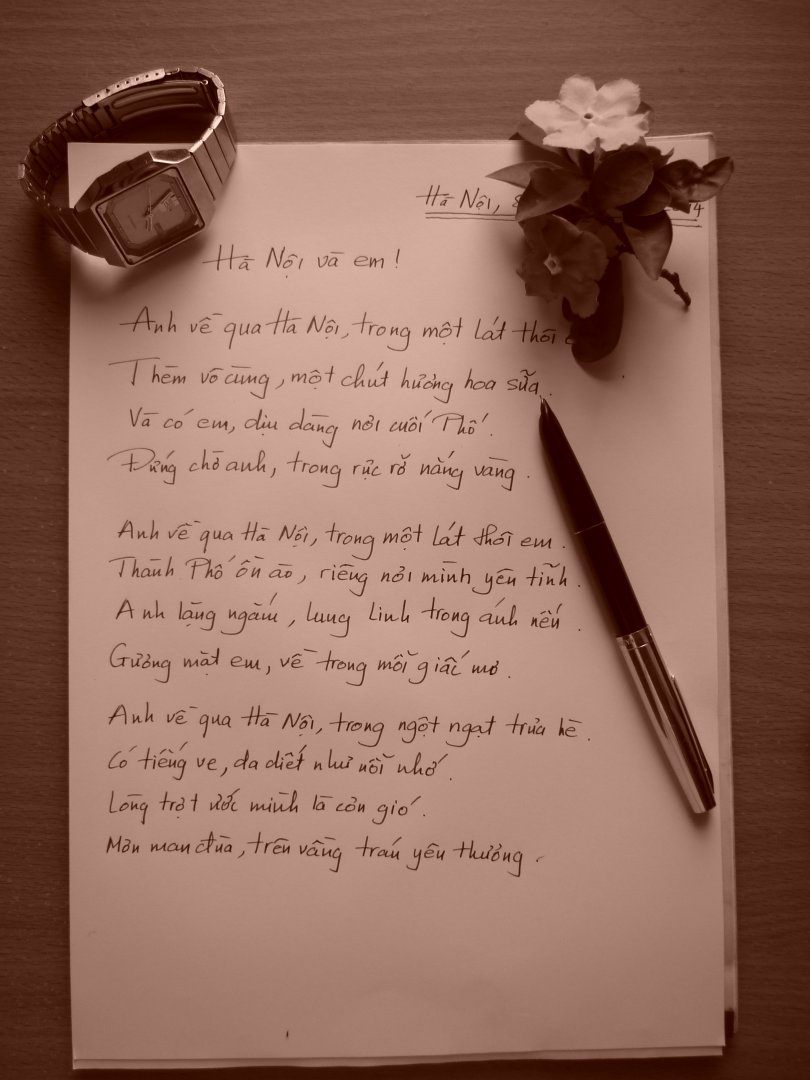 Hà Nội,
Hà Nội và em!
Anh về qua Hà Nội, trong một lát thôi
Thèm vô cùng, một chút hương hoa sữa.
Và có em, dịu dàng nơi cuối Phố.
Đứng chờ anh, trong rực rỡ nắng vàng.
Anh về qua Hà Nội, trong một lát thôi em.
Thành Phố ồn ào, riêng nơi mình yên tĩnh.
Anh lặng ngắm, lung linh trong ánh nến.
Gương mặt em, về trong mỗi giấc mơ.
Anh về qua Hà Nội, trong ngột ngạt trưa hè.
Có tiếng ve, da diết như nỗi nhớ.
Lòng trợt ước mình là cơn gió.
Mơn man đùa, trên vầng trán yêu thương.